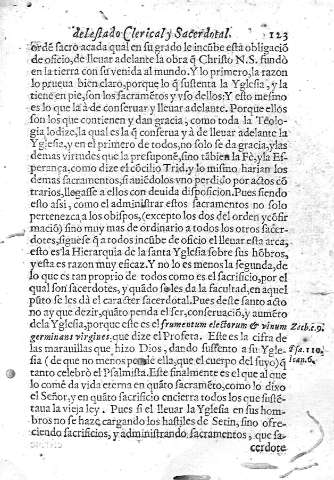 del estado Clerical y Sacerdotal. 123
ordẽ sacro a cada qual en su grado le incũbe esta obligació
de oficio, de lleuar adelante la obra q̃ Christo N.S. fundò
en la tierra con su venida al mundo. Y lo primero, la razon
lo prueua bien claro, porque lo q̃ sustenta la Yglesia, y la
tiene en pie, son los sacramẽtos y vso dellos: Y esto mesmo
es lo que la à de conseruar y lleuar adelante. Porque ellos
son los que contienen y dan gracia, como toda la Teolo-
gia lo dize, la qual es la q̃ conserua y à de lleuar adelante la
Yglesia, y en el primero de todos, no solo se da gracia, y las
demas virtudes que la presuponẽ, sino tãbien la Fè, y la Es-
perança, como dize el cõcilio Trid. y lo mismo harian los
demas sacramentos, si auiẽdolos vno perdido por actos cõ
trarios, llegasse a ellos con deuida disposicion. Pues siendo
esto assi, como el administrar estos sacramentos no solo
pertenezca a los obispos, (excepto los dos del orden y cõfir
macion) sino muy mas de ordinario a todos los otros sacer-
dotes, siguese q̃ a todos incũbe de oficio el lleuar esta arca,
esto es la Hierarquia de la santa Yglesia sobre sus hõbros,
y esta es razon muy eficaz. Y no lo es menos la segunda, de
lo que es tan proprio de todos como es el sacrificio, por el
qual son sacerdotes, y quãdo se les da la facultad, en aquel
pũto se les dà el caracter sacerdotal. Pues deste santo acto
no ay que dezir, quãto penda el ser, conseruació, y aumẽto
de la Yglesia, porque este es el frumentum electorum & vinum Zach.c.9.
germinans virgines, que dize el Profeta. Este es la cifra de
las marauillas que hizo Dios, dando sustento a su Ygle- Psa. 110.
sia (de que no menos pende ella, que el cuerpo del suyo) q̃ Ioan.6.
tanto celebrò el Psalmista. Este finalmente es el que al que
lo come dà vida eterna en quãto sacramẽto, como lo dixo
el Señor, y en quãto sacrificio encierra todos los que sustẽ-
taua la vieja ley. Pues si el lleuar la Yglesia en sus hom-
bros no se haze cargando los hastiles de Setin, sino ofre-
ciendo sacrificios, y administrando sacramentos, que sa-
cerdote